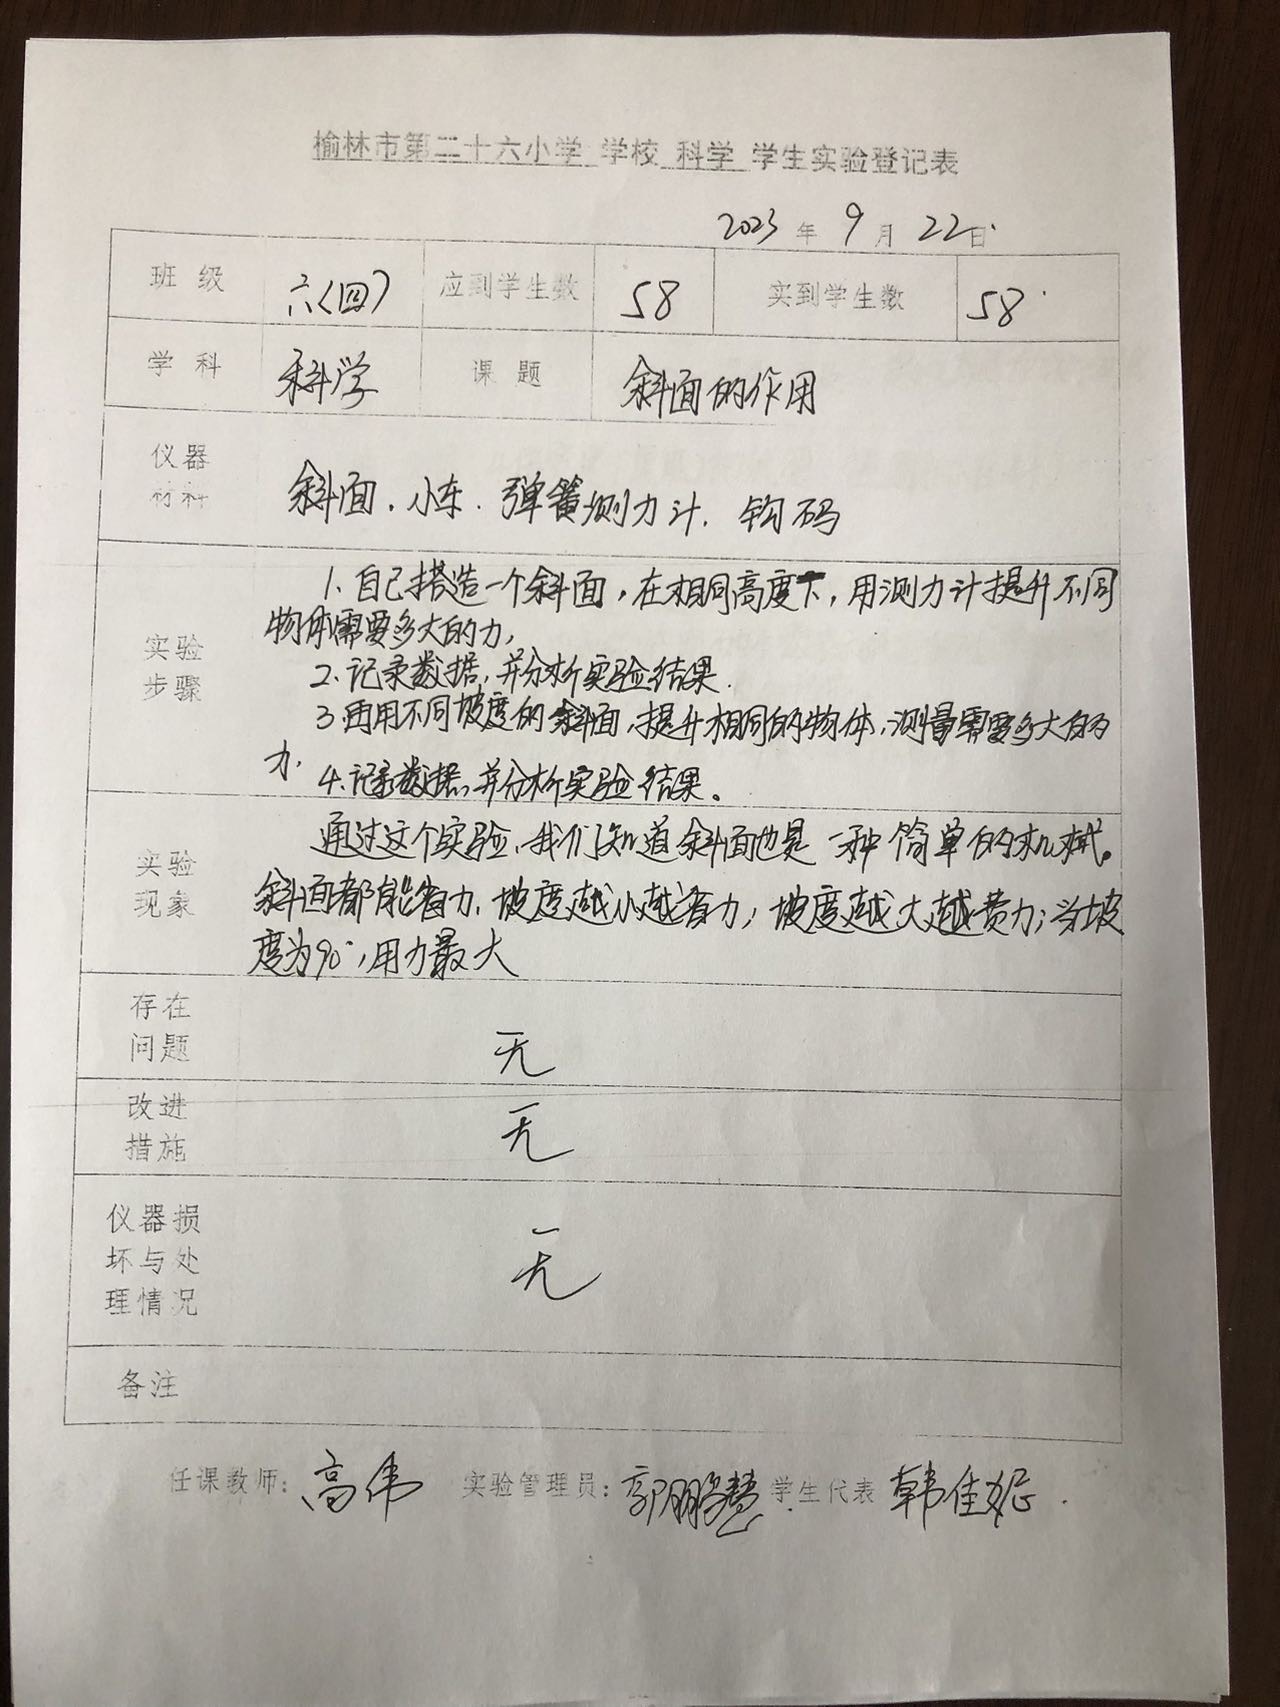 榆林市第二十六小学 学校 科学 学生实验登记表
2023 年 9 月 22 日
班 级 六(四) 应到学生数 58 实到学生数 58
学 科 科学 课 题 斜面的作用
仪器
材料
斜面、小车、弹簧测力计、钩码
实验
步骤
1. 自己搭造一个斜面,在相同高度下,用测力计提升不同
物体需要多大的力,
2、记录数据,并分析实验结果.
3 再用不同坡度的斜面、提升相同的物体,测量需要多大的
力.
4.记录数据,并分析实验结果。
实验
现象
通过这个实验,我们知道斜面也是一种简单的机械。
斜面都能省力,坡度越小越省力;坡度越大越费力;当坡
度为90°,用力最大
存在
问题
无
改进
措施
无
仪器损
坏与处
理情况
无
备注
任课教师: 高伟 实验管理员: 郭鹏慧 学生代表 韩佳妮